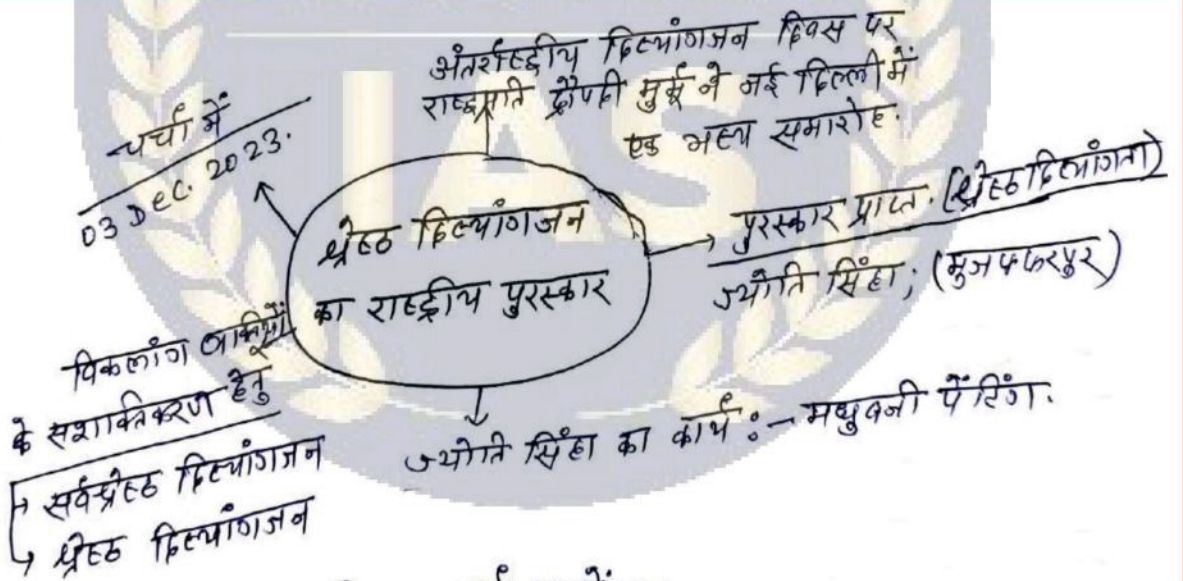 अंतर्राष्ट्रीय दिव्यांगजन दिवस पर
राष्ट्रपति द्रौपदी मुर्मू ने नई दिल्ली में
एक भव्य समारोह.
चर्चा में
03 Dec. 2023.
श्रेष्ठ दिव्यांगजन
का राष्ट्रीय पुरस्कार
पुरस्कार प्राप्त. (श्रेष्ठ दिव्यांगता)
ज्योति सिंहा; (मुजफ्फरपुर)
विकलांग व्यक्तियों
के सशक्तिकरण हेतु
सर्वश्रेष्ठ दिव्यांगजन
श्रेष्ठ दिव्यांगजन
ज्योति सिंहा का कार्य :- मधुबनी पेंटिंग.
IAS